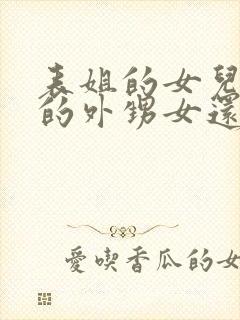 表姐的女兒
的外甥女還
愛喫香瓜的女